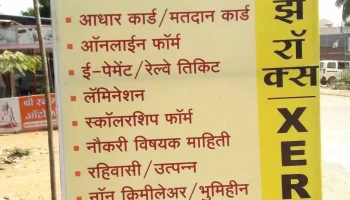 • आधार कार्ड/मतदान कार्ड
• ऑनलाईन फॉर्म
• ई-पेमेंट/रेल्वे तिकिट
• लॅमिनेशन
• स्कॉलरशिप फॉर्म
• नौकरी विषयक माहिती
• रहिवासी/उत्पन्न
• नॉन क्रिमीलेअर/भुमिहीन
झेरॉक्स
XER